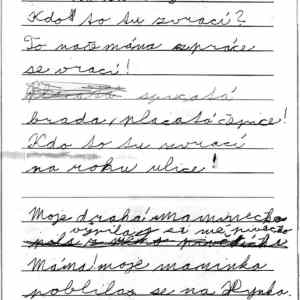 Kdo to tu zvrací?
To naše máma z práce
se vrací!
spratá
brada, placatá čepice!
Kdo to tu zvrací
na rohu ulice!
Moje drahá maminečko
vypila jsi mé pivečko
Máma! moje maminka
poblila se na Hynka.